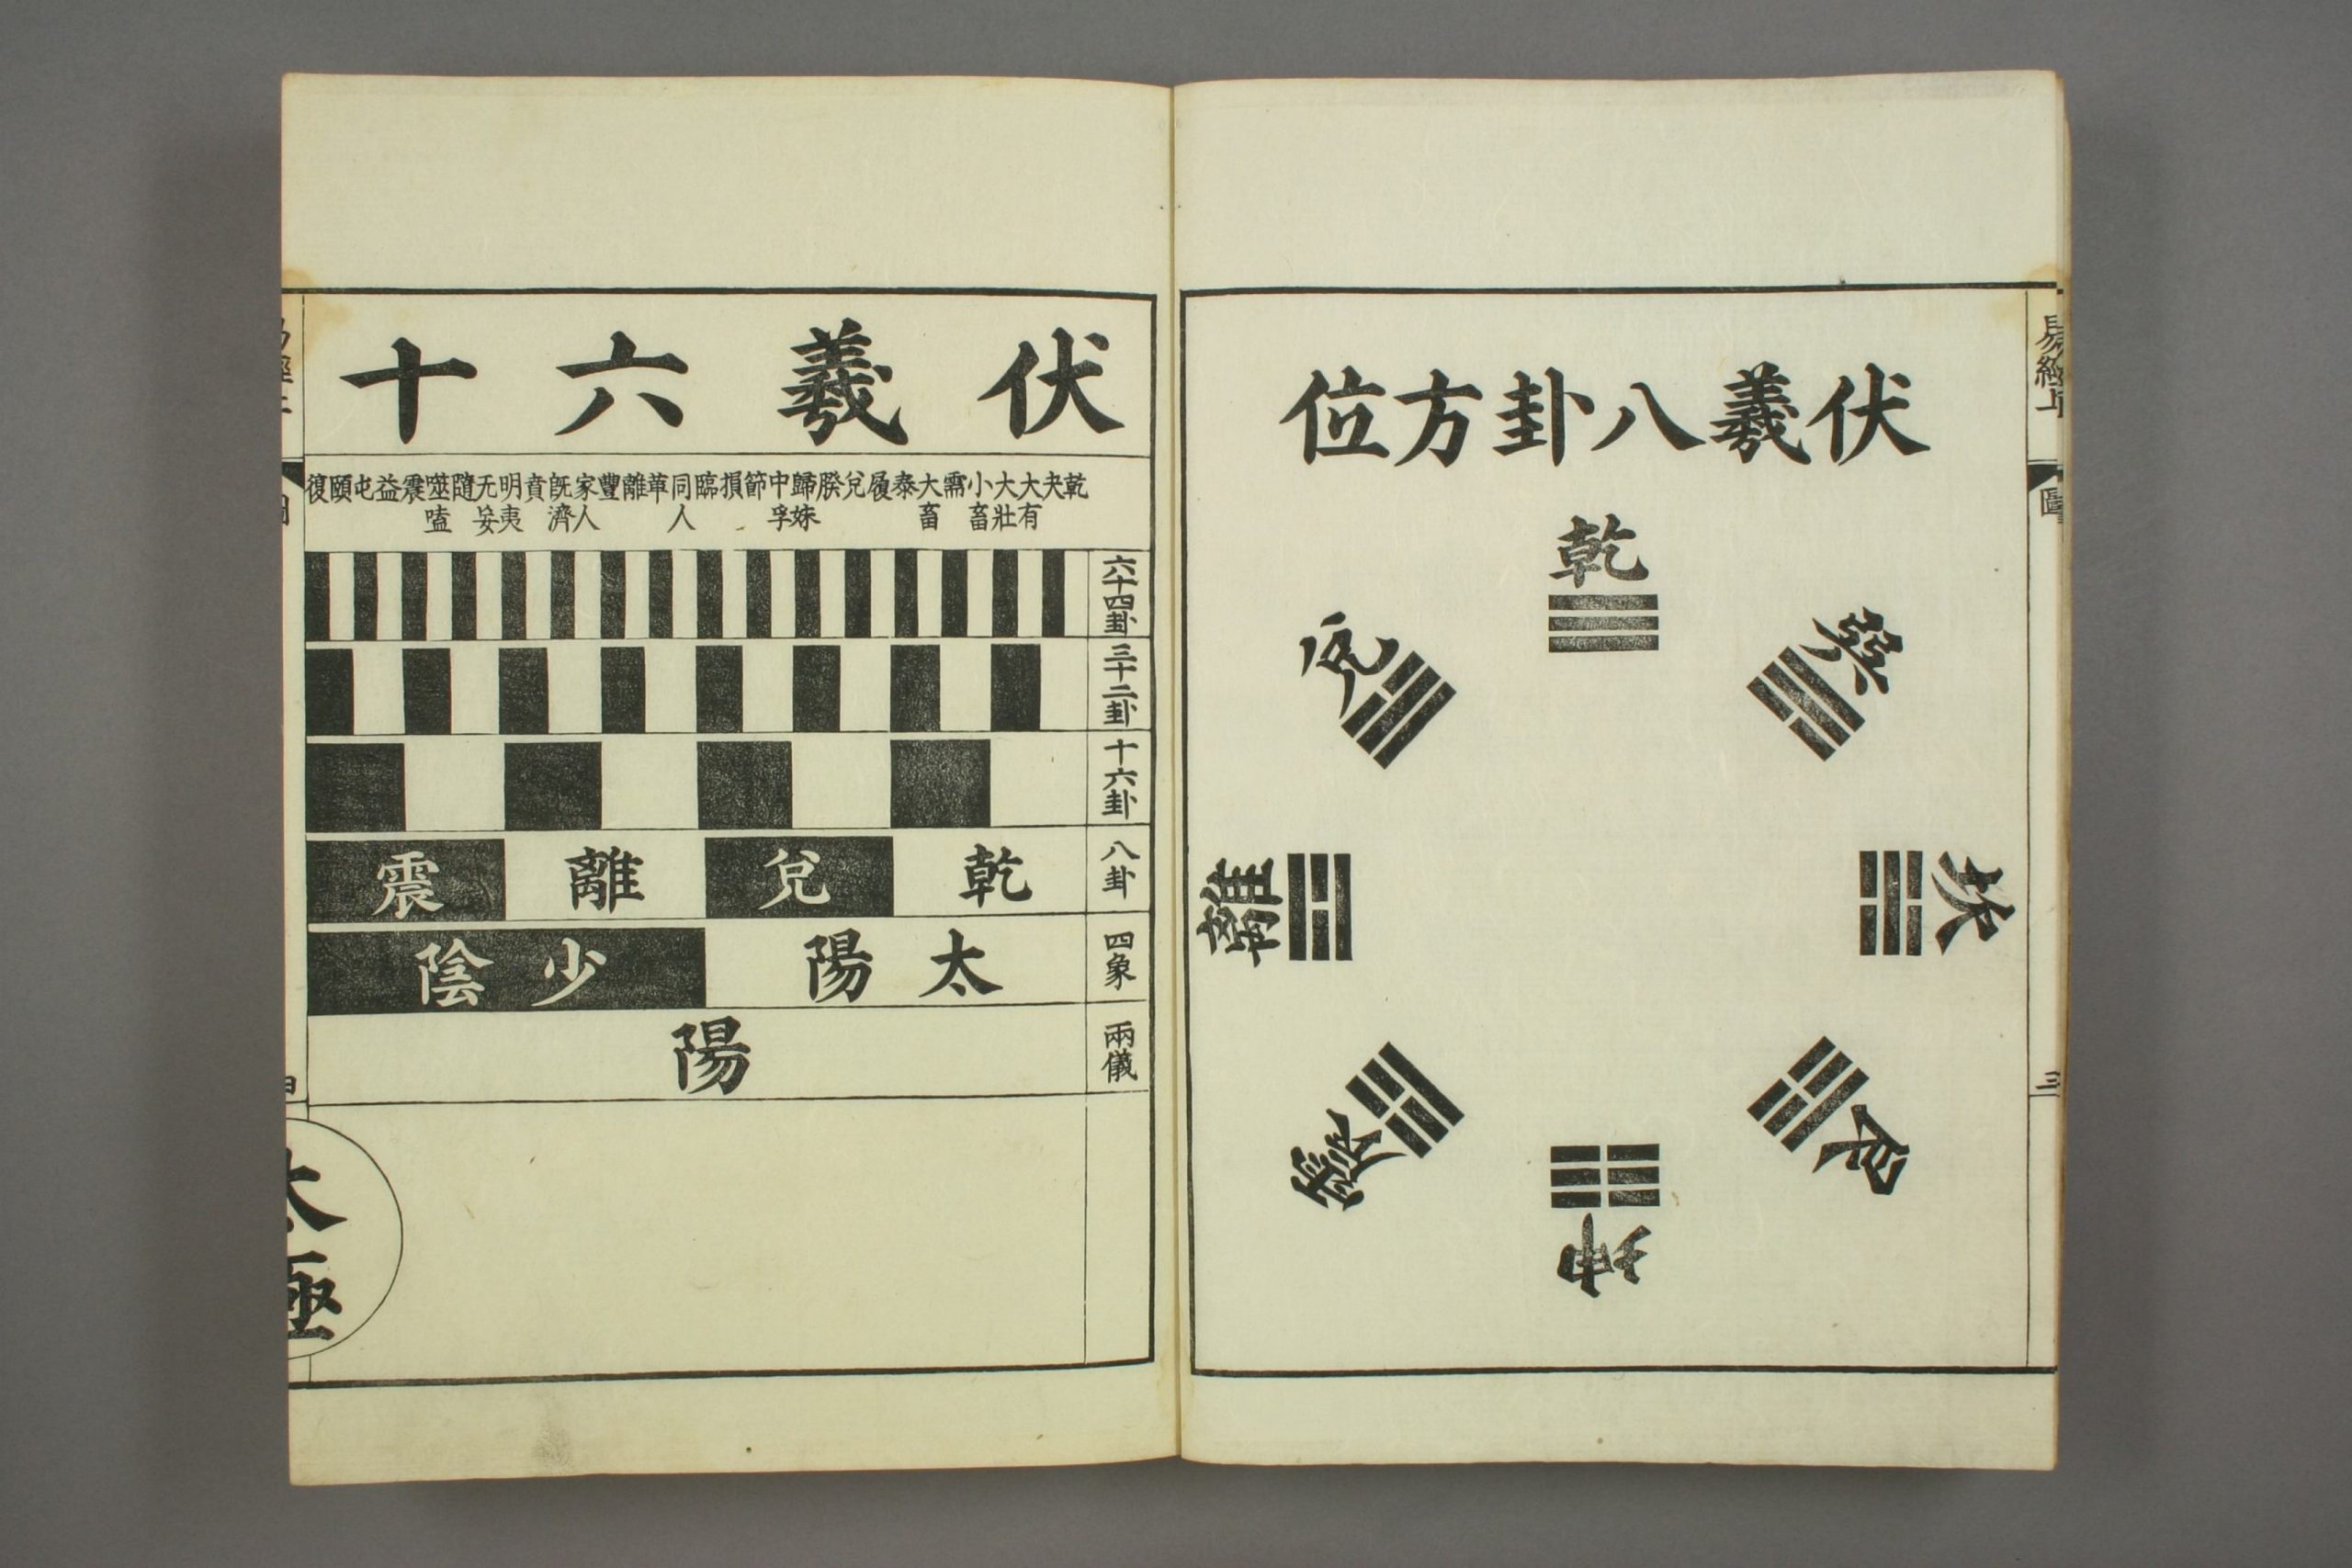 易經上
圖
三
伏羲八卦方位
乾
巽
坎
艮
坤
震
離
兌
伏羲六十
乾 夬 大有 大壯 小畜 需 大畜 泰 履 兌 睽 歸妹 中孚 節 損 臨 同人 革 離 豐 家人 旣濟 賁 明夷 无妄 隨 噬嗑 震 益 屯 頤 復
六十四卦
三十二卦
十六卦
八卦
乾 兌 離 震
四象
太陽 少陰
兩儀
陽
太極